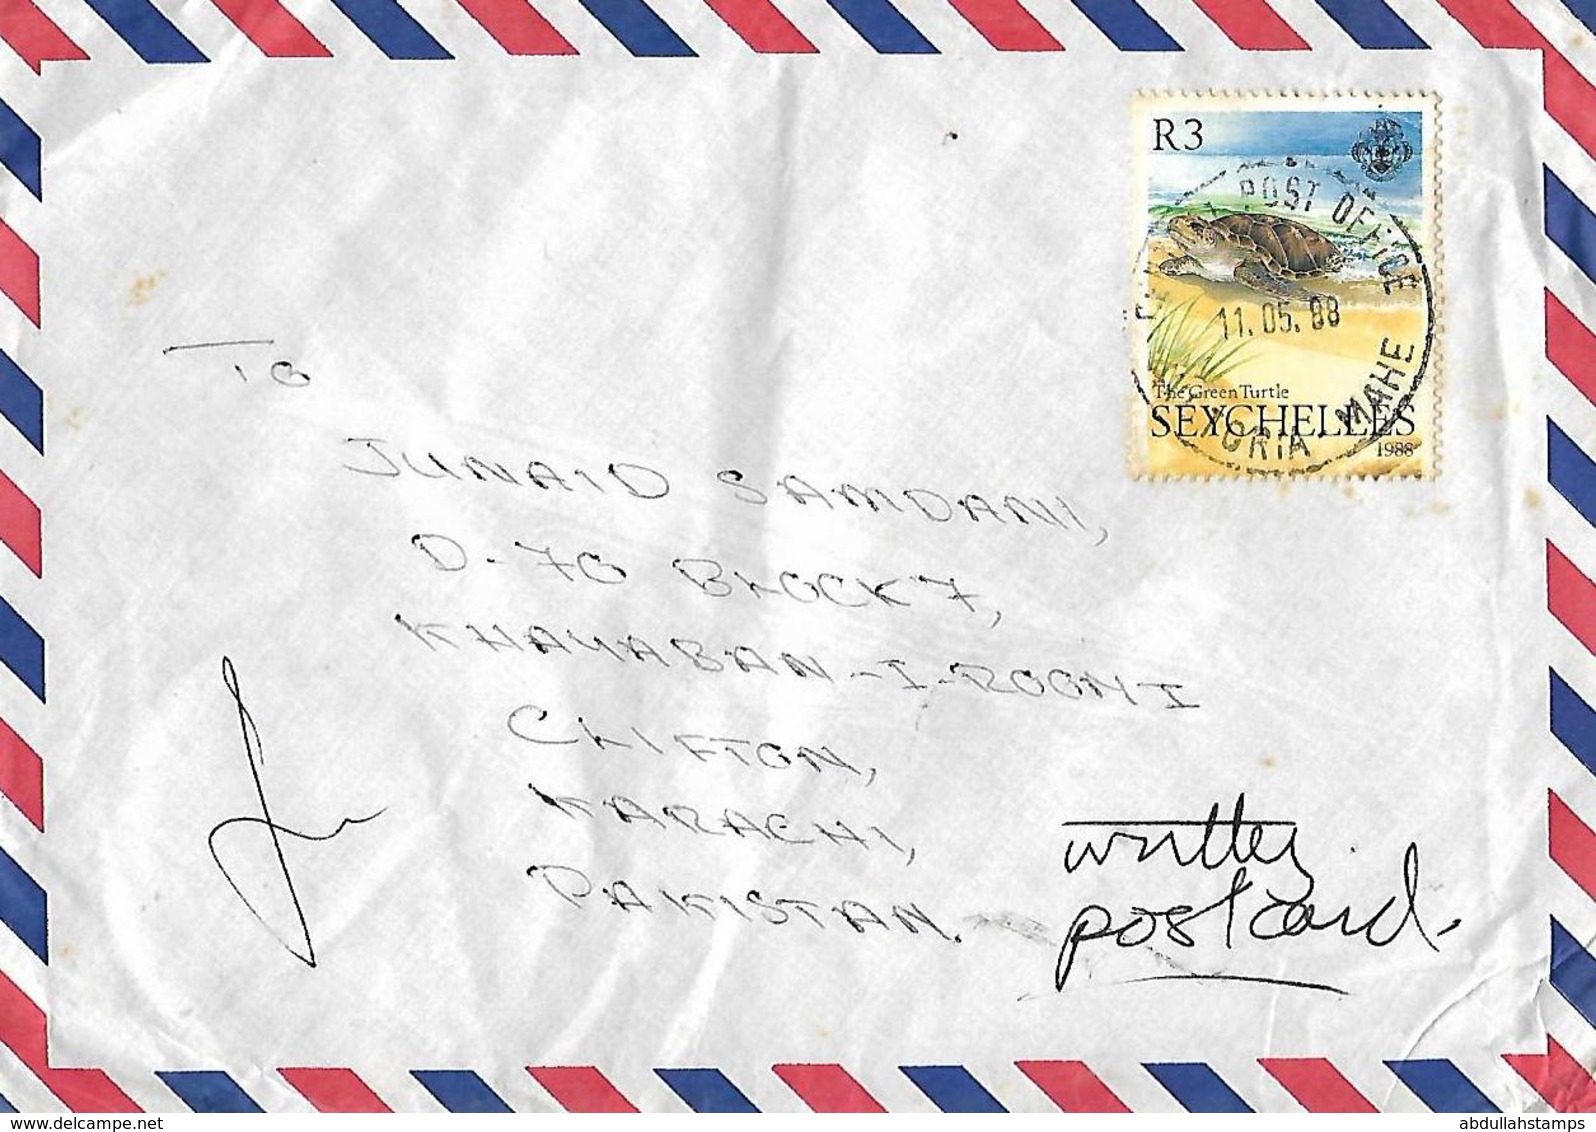 R3
POST OFFICE
11.05.88
VICTORIA MAHE
The Green Turtle
SEYCHELLES
1988
TO
JUNAID SAMDANI,
D-70 BLOCK 7,
KHAYABAN-I-ROOMI
CLIFTON,
KARACHI,
PAKISTAN.
written
postcard.
www.delcampe.net
abdullahstamps